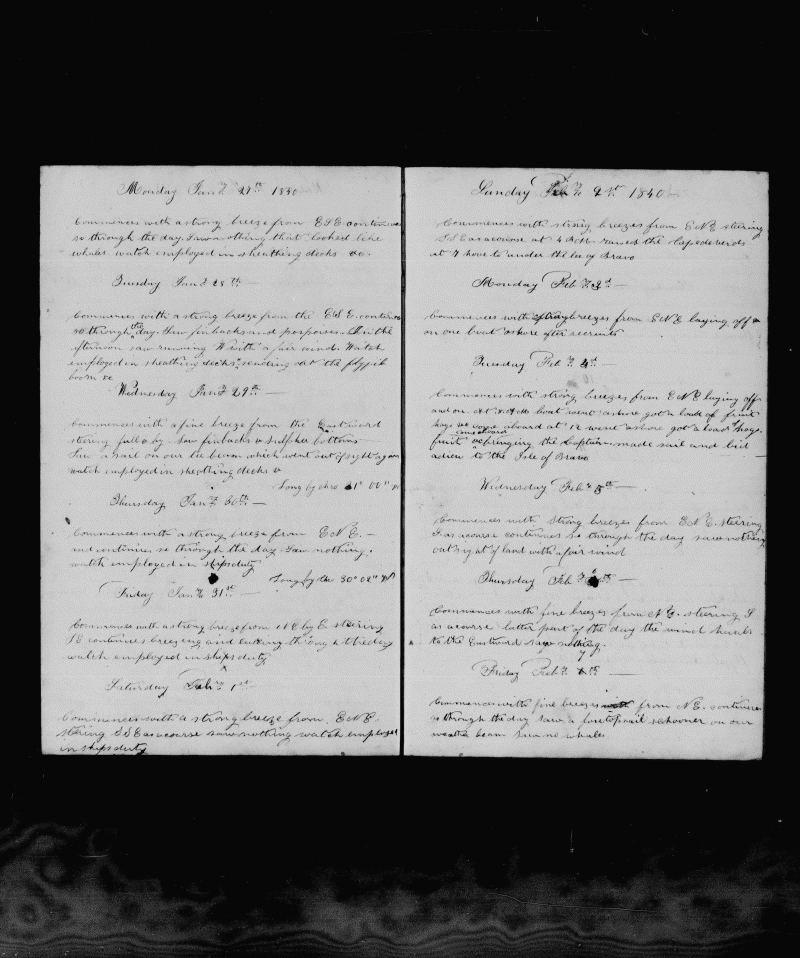 Monday Jan 27th 1840
Commences with a strong breeze from ESE continues
so through the day. Saw nothing that looked like
whales watch employed in sheathing decks &c.
Tuesday Jan 28th
Commences with a strong breeze from the ESE. continues
so through the day. Saw finbacks and porpoises. In the
afternoon saw running W with a fair wind. Watch
employed in sheathing decks, sending out the flyjib
boom &c
Wednesday Jan 29th
Commences with a fine breeze from the Eastward
stering full & by. Saw finbacks & sulpher bottoms
Saw a sail on our lee beam which went out of sight again
watch employed in sheathing decks &
Long by chro 31° 00"
Thursday Jan 30th
Commences with a strong breeze from ENE.
and continues so through the day. Saw nothing.
watch employed in shipsduty
Long by 30° 02" W
Friday Jan 31st
Commences with a strong breeze from NE by E stering
SE continues breezing and through the day
watch employed in shipsduty
Saturday Feb 1st
Commences with a strong breeze from. ENE.
stering SSE as acourse saw nothing watch employed
in shipsduty
Sunday Feb 2 1840
Commences with strong breezes from ENE stering
SSE as acourse at 4 raised the Capedeverds
at 7 hove to under the lee of Bravo
Monday Feb 3d
Commences with strong breezes from ENE laying off &
on one boat ashore after recruits
Tuesday Feb 4
Commences with strong breezes from ENE laying off
and on. At boat went ashore got a load of fruit
hogs &c came aboard at 12 went ashore got a load of hogs.
came aboard
fruit &c bringing the Captain made sail and bid
adieu to the Isle of Bravo
Wednesday Feb 5th
Commences with strong breezes from ENE. stering
S as acourse continues so through the day saw nothing
out sight of land with a fair wind
Thursday Feb th
Commences with fine breezes from NE. stering S
as acourse latter part of the day the wind
to the Eastward saw nothing.
Friday Feb 7 th
Commences with fine breezes from NE. continues
so through the day Saw a foretopsail schooner on our
weather beam Saw no whales